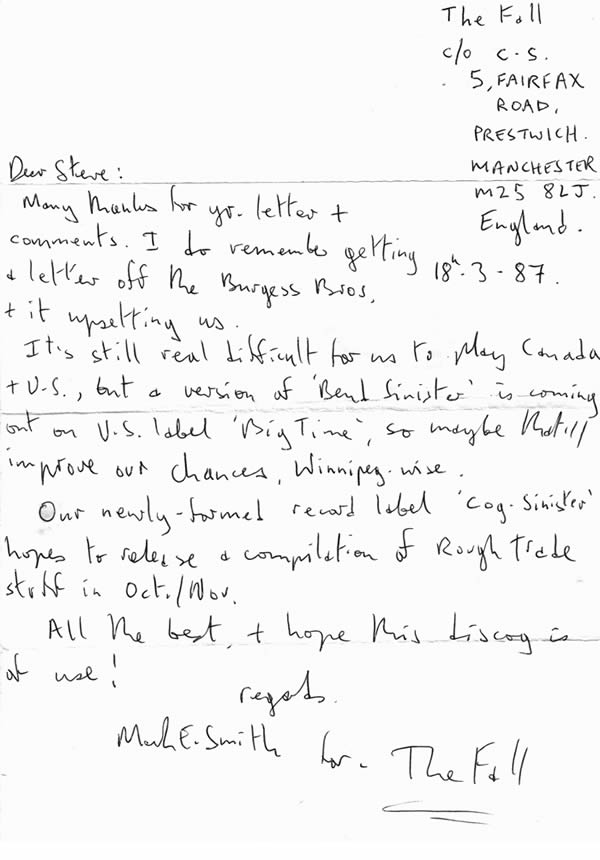 The Fall
c/o C.S.
5, FAIRFAX
ROAD,
PRESTWICH.
MANCHESTER
M25 8LJ.
England.
18th. 3 - 87.
Dear Steve:
Many thanks for yr. letter +
comments. I do remember getting
a letter off the Burgess Bros,
+ it upsetting us.
It's still real difficult for us to play Canada
+ U.S., but a version of 'Bend Sinister' is coming
out on U.S. label 'Big Time', so maybe that'll
improve our chances, Winnipeg-wise.
Our newly-formed record label 'Cog-Sinister'
hopes to release a compilation of Rough Trade
stuff in Oct./Nov.
All the best, + hope this discog is
of use!
regards.
Mark E. Smith for. The Fall